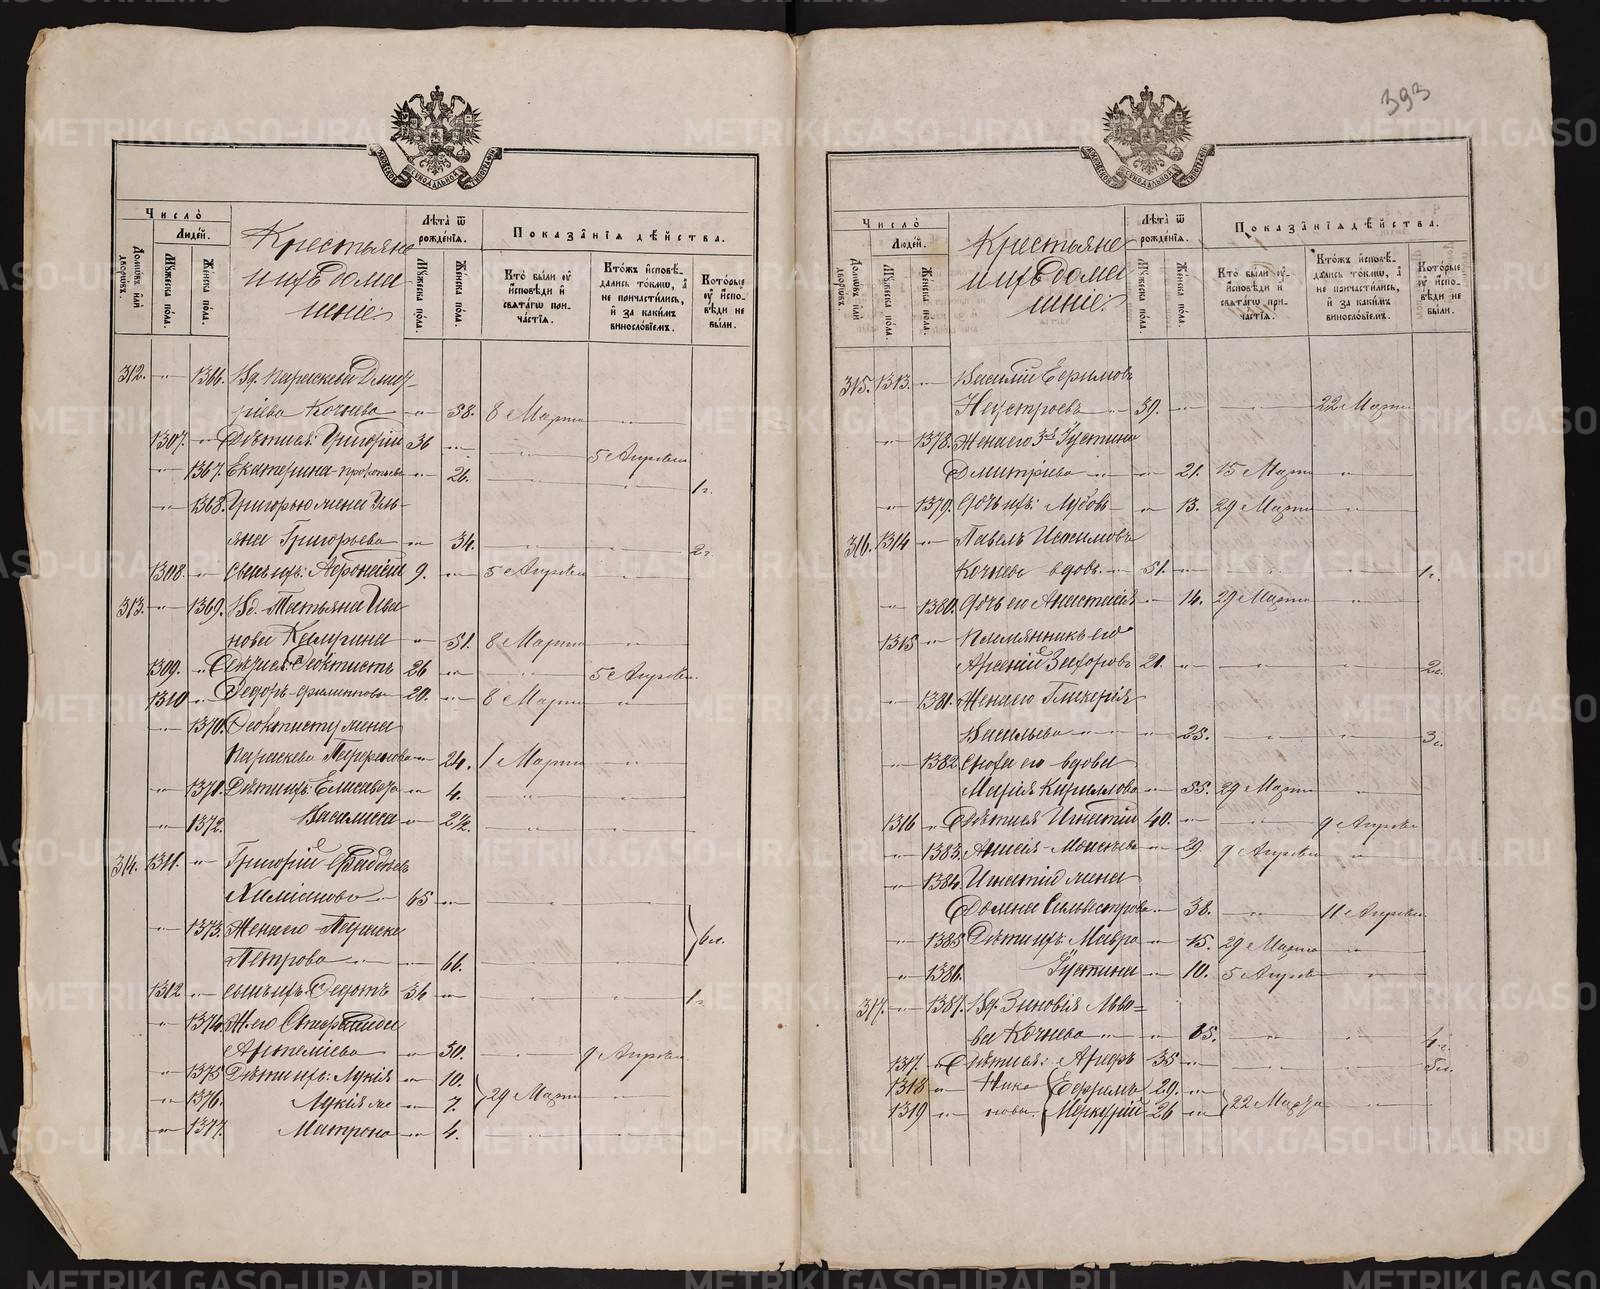 393
МОСКОВСКОЙ СѴНОДАЛЬНОЙ ТИПОГРАФІИ
Число̀
Людéй.
Домѡвъ и҆лѝ дворѡвъ.
Мꙋжеска по́ла.
Же́нска по́ла.
Крестьяне
и ихъ дома
шніе.
Лѣ́та ѿ рожде́нїѧ.
Мꙋжеска по́ла.
Же́нска по́ла.
Показа̑нїѧ дѣ́йства.
Кто̀ бы́ли оу҆ и҆сповѣди и҆ свѧта́гѡ при-
ча́стїѧ.
Кто́жъ и҆сповѣ-
дались то́кмѡ, а҆
не причасти́лись,
и҆ за каки́мъ
виносло́вїемъ.
Кото́рые
оу҆ и҆спо-
вѣди не
были.
312. 1366. Вд. Параскева Дмит-
ріева Кочнева 58. 8 Марта
1307. Дѣти ея: Григорій 36 5 Апрѣля
1367. Екатерина 26. 1г.
1368. Григорью жена Уль-
яна Григорьева 34. 2г.
1308. Сынъ ихъ: Афонасій 9. 5 Апрѣля
313. 1369. Вд. Татьяна Ива-
нова 51. 8 Марта
1309. Дѣти ея: Ѳеоктистъ 26 5 Апрѣля
1310 Ѳедоръ Филиповы 20. 8 Марта
1370. Ѳеоктисту жена
Параскева 24. 1 Марта
1371. Дѣти ихъ: Елисавета 4.
1372. Василиса 2½.
314. 1311. Григорій
65
1373. Жена его
Петрова 66. 6л.
1312 Сынъ ихъ: Ѳедотъ 36 1г.
1374. Ж. его
Артеміева 30. 9 Апрѣля
1375 Дѣти ихъ: Лукія 10.
1376. Лукія же 7. 29 Марта
1377. Матрона 4.
Число̀
Людéй.
Домѡвъ и҆лѝ дворѡвъ.
Мꙋжеска по́ла.
Же́нска по́ла.
Крестьяне
и ихъ дома
шніе.
Лѣ́та ѿ рожде́нїѧ.
Мꙋжеска по́ла.
Же́нска по́ла.
Показа̑нїѧ дѣ́йства.
Кто̀ бы́ли оу҆-
и҆сповѣди и҆
свѧта́гѡ при-
ча́стїѧ.
Кто́жъ и҆сповѣ-
дались то́кмѡ, а҆
не причасти́лись,
и҆ за каки́мъ
виносло́вїемъ.
Кото́рые
оу҆ и҆спо-
вѣди не
были.
315. 1313. Василій Ефимовъ
Неустроевъ 39. 22 Марта
1378. Жена его Густина
Дмитріева 21. 15 Марта
1379. Дочь ихъ: Любовь 13. 29 Марта
316. 1314 Павелъ
Кочневъ вдовъ 51. 1г.
1380. Дочь его Анастасія 14. 29 Марта
1315 Племянникъ его
Арсеній 21. 2г.
1381. Жена его Гликерія
Васильева 25. 3г.
1382 Сноха его вдова
Марія Кириллова 55. 29 Марта
1316 Дѣти ея Игнатій 40. 9 Апрѣля
1383. Анисія 29. 9 Апрѣля
1384. Игнатію жена
Домна Сильвестрова 38. 11 Апрѣля
1385 Дѣти ихъ: Мавра 15. 29 Марта
1386. Густина 10. 5 Апрѣля
317. 1387. Вд. Зиновія Льво-
ва Кочнева 65. 4г.
1317. Дѣти ея: 35 5л.
1318 Нико Ефимъ 29.
1319 новы. Меркурій 26 22 Марта
METRIKI.GASO-URAL.RU